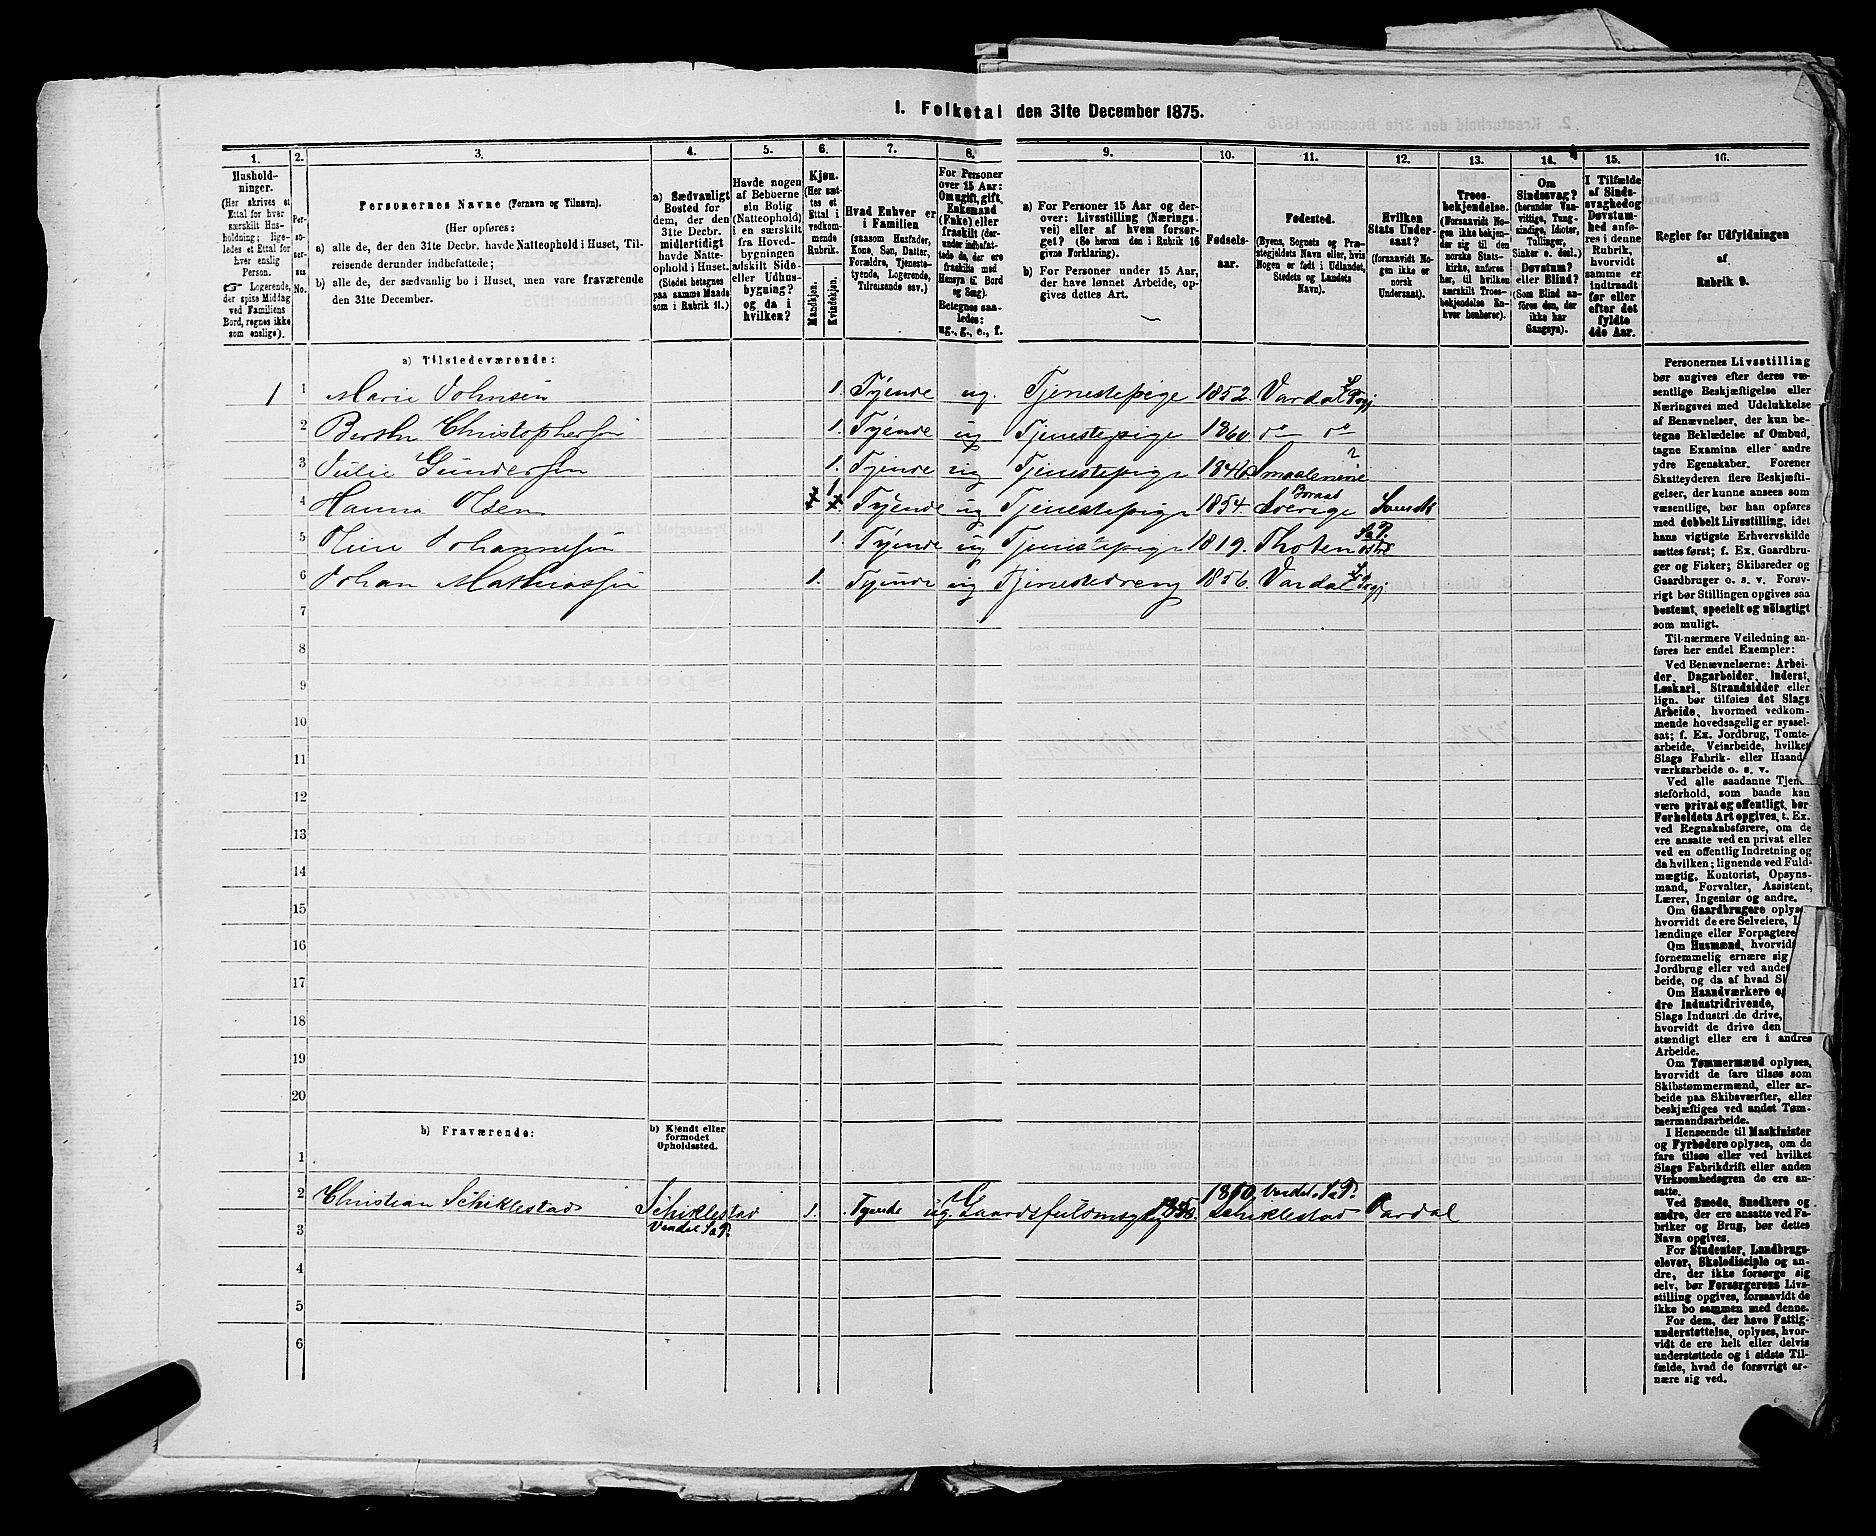 I. Folketal den 31te December 1875.
1. 2. 3. 4. 5. 6. 7. 8. 9. 10. 11. 12. 13. 14. 15. 16.
Hushold-
ninger.
(Her skrives et
Ettal for hver
særskilt Hus-
holdning; lige-
ledes et Ettal for
hver enslig
Person.
☞ Logerende,
der spise Middag
ved Familiens
Bord, regnes ikke
som enslige).
Per-
so-
ner-
nes
No.
Personernes Navne (Fornavn og Tilnavn).
(Her opføres:
a) alle de, der den 31te Decbr. havde Natteophold i Huset, Til-
reisende derunder indbefattede;
b) alle de, der sædvanlig bo i Huset, men vare fraværende
den 31te December.
a) Sædvanligt
Bosted for
dem, der den
31te Decbr.
midlertidigt
havde Natte-
ophold i Huset.
(Stedet betegnes
paa samme Maade
som i Rubrik 11.)
Havde nogen
af Beboerne
sin Bolig
(Natteophold)
i en særskilt
fra Hoved-
bygningen
adskilt Side-
eller Udhus-
bygning?
og da i
hvilken?
Kjøn.
(Her sæt-
tes et
Ettal i
vedkom-
mende
Rubrik.
Mandkjøn.
Kvindekjøn.
Hvad Enhver er
i Familien
(saasom Husfader,
Kone, Søn, Datter,
Forældre, Tjeneste-
tyende, Logerende,
Tilreisende osv.)
For Personer
over 15 Aar:
Om ugift, gift,
Enkemand
(Enke) eller
fraskilt (der-
under indbefat-
tede de, der ere
fraskilte med
Hensyn til Bord
og Seng).
Betegnes saa-
ledes:
ug., g., e., f.
a) For Personer 15 Aar og der-
over: Livsstilling (Nærings-
vei) eller af hvem forsør-
get? (Se herom den i Rubrik 16
givne Forklaring).
b) For Personer under 15 Aar,
der have lønnet Arbeide, op-
gives dettes Art.
Fødsels-
aar.
Fødested.
(Byens, Sognets og Præ-
stegjeldets Navn eller, hvis
Nogen er født i Udlandet,
Stedets og Landets
Navn).
Hvilken
Stats Under-
saat?
(forsaavidt No-
gen ikke er
norsk
Undersaat).
Troes-
bekjendelse.
(Forsaavidt No-
gen ikke bekjen-
der sig til den
norske Stats-
kirke, anføres
her, til hvilken
særskilt Troes-
bekjendelse En-
hver henhører).
Om
Sindssvag?
(herunder Van-
vittige, Tung-
sindige, Idioter,
Tullinger,
Sinker o. desl.)
Døvstum?
eller Blind?
(Som Blind an-
føres den, der
ikke har
Gangsyn).
I Tilfælde
af Sinds-
svaghed og
Døvstum-
hed anfø-
res i denne
Rubrik,
hvorvidt
samme er
indtraadt
før eller
efter det
fyldte
4de Aar.
Regler for Udfyldningen
af
Rubrik 9.
a) Tilstedeværende:
1 1 Marie Johnsen 1. Tyende ug. Tjenestepige 1852 Vardal
2 Christophersen 1. Tyende ug Tjenestepige 1860 do do
3 Julie Gundersen 1. Tyende ug Tjenestepige 1846 Smaalenene ?
4 Hanna Olsen 1 Tyende ug Tjenestepige 1854. Sverige Svensk
5 Johannesen 1. Tyende ug Tjenestepige 1819. Thoten
6 Johan Mathiassen 1. Tyende ug Tjenestedreng 1856. Vardal
7
8
9
10
11
12
13
14
15
16
17
18
19
20
b) Fraværende:
b) Kjendt eller
formodet
Opholdssted.
1
2 Christian Schiklestad Schiklestad 1. Tyende ug. Gaardsfuldmægtig 1850. Vardal S. P.
Vardal S. P. Schiklestad Vardal
3
4
5
6
Personernes Livsstilling
bør angives efter deres væ-
sentlige Beskjæftigelse eller
Næringsvei med Udelukkelse
af Benævnelser, der kun be-
tegne Beklædelse af Ombud,
tagne Examina eller andre
ydre Egenskaber. Forener
Skatteyderen flere Beskjæfti-
gelser, der kunne ansees som
væsentlige, bør han opføres
med dobbelt Livsstilling, idet
hans vigtigste Erhvervskilde
sættes først; f. Ex. Gaardbru-
ger og Fisker; Skibsreder og
Gaardbruger o. s. v. Forøv-
rigt bør Stillingen opgives saa
bestemt, specielt og nøiagtigt
som muligt.
Til nærmere Veiledning an-
føres her endel Exempler:
Ved Benævnelserne: Arbei-
der, Dagarbeider, Inderst,
Løskarl, Strandsidder eller
lign. bør tilføies det Slags
Arbeide, hvormed vedkom-
mende hovedsagelig er syssel-
sat; f. Ex. Jordbrug, Tomte-
arbeide, Veiarbeide, hvilket
Slags Fabrik- eller Haand-
værksarbeide o. s. v.
Ved alle saadanne Tjene-
steforhold, som baade kan
være privat og offentligt, bør
Forholdets Art opgives, t. Ex.
ved Regnskabsførere, om de
ere ansatte ved en privat eller
ved en offentlig Indretning og
da hvilken; lignende ved Fuld-
mægtig, Kontorist, Opsyns-
mand, Forvalter, Assistent,
Lærer, Ingeniør og andre.
Om Gaardbrugere oplyse
hvorvidt de ere Selveiere,
lændinge eller Forpagtere
Om Husmænd, hvorvidt
fornemmelig ernære sig
Jordbrug eller ved andet
beide, og da af hvad
Om Haandværkere og
dre Industridrivende,
Slags Industri de drive,
hvorvidt de drive den
stændigt eller ere i andres
Arbeide.
Om Tømmermænd oplyses,
hvorvidt de fare tilsøs som
Skibstømmermænd, eller ar-
beide paa Skibsværfter, eller
beskjæftiges ved andet Tøm-
mermandsarbeide.
I Henseende til Maskinister
og Fyrbødere oplyses, om de
fare tilsøs eller ved hvilket
Slags Fabrikdrift eller anden
Virksomhedsgren de ere an-
satte.
Ved Smede, Snedkere og
andre, der ere ansatte ved Fa-
briker og Brug, bør dettes
Navn opgives.
For Studenter, Landbrugs-
elever, Skoledisciple og an-
dre, der ikke forsørge sig
selv, bør Forsørgerens Livs-
stilling opgives, forsaavidt de
ikke bo sammen med denne.
For dem, der have Fattig-
understøttelse, oplyses, hvor-
vidt de ere helt eller delvis
understøttede og i sidste Til-
fælde, hvad de forøvrigt er-
nære sig ved.